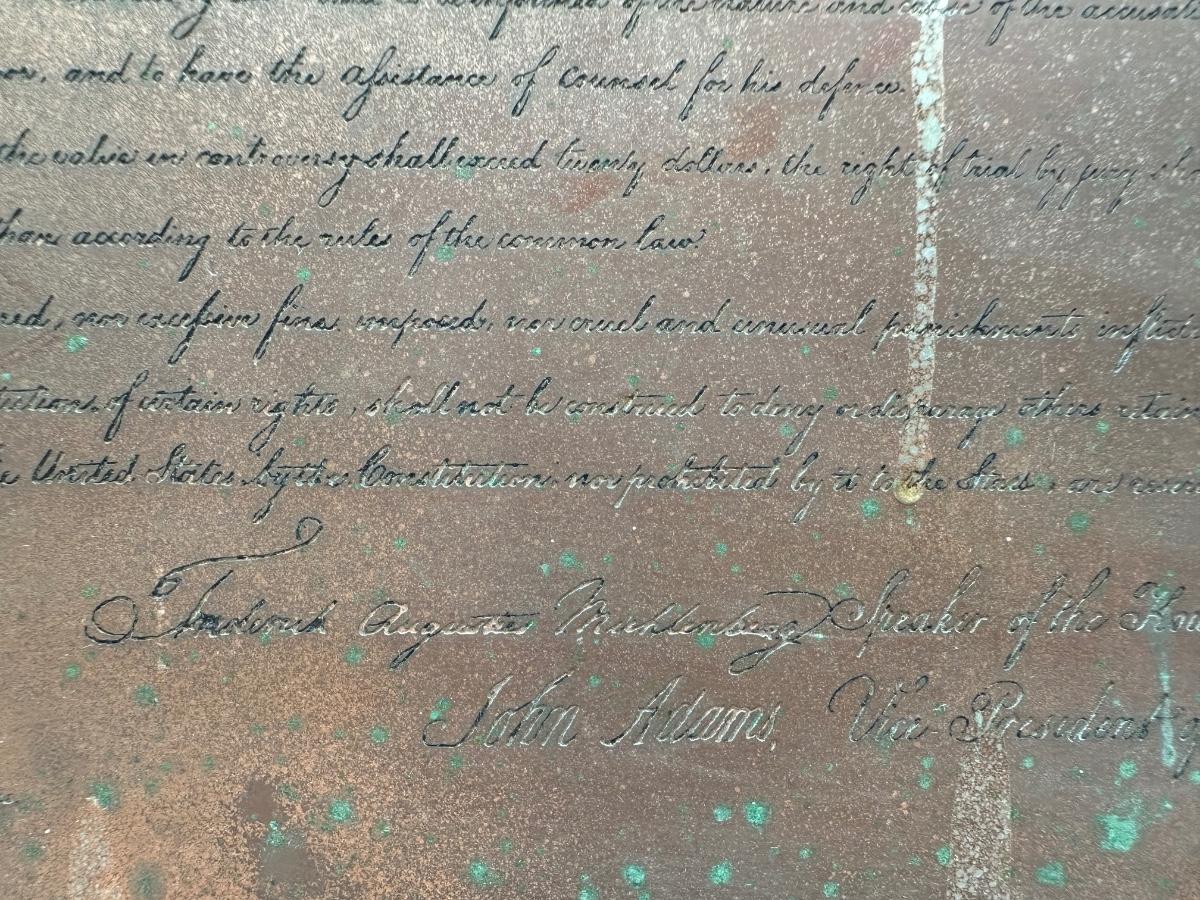 to be informed of the nature and cause of the accusati
or, and to have the assistance of counsel for his defence.
the value in controversy shall exceed twenty dollars, the right of trial by jury sha
than according to the rules of the common law.
red, nor excessive fines imposed, nor cruel and unusual punishments inflicte
tution, of certain rights, shall not be construed to deny or disparage others retain
e United States by the Constitution, nor prohibited by it to the States, are reserv
Frederick Augustus Muhlenberg Speaker of the Hou
John Adams, Vice President of